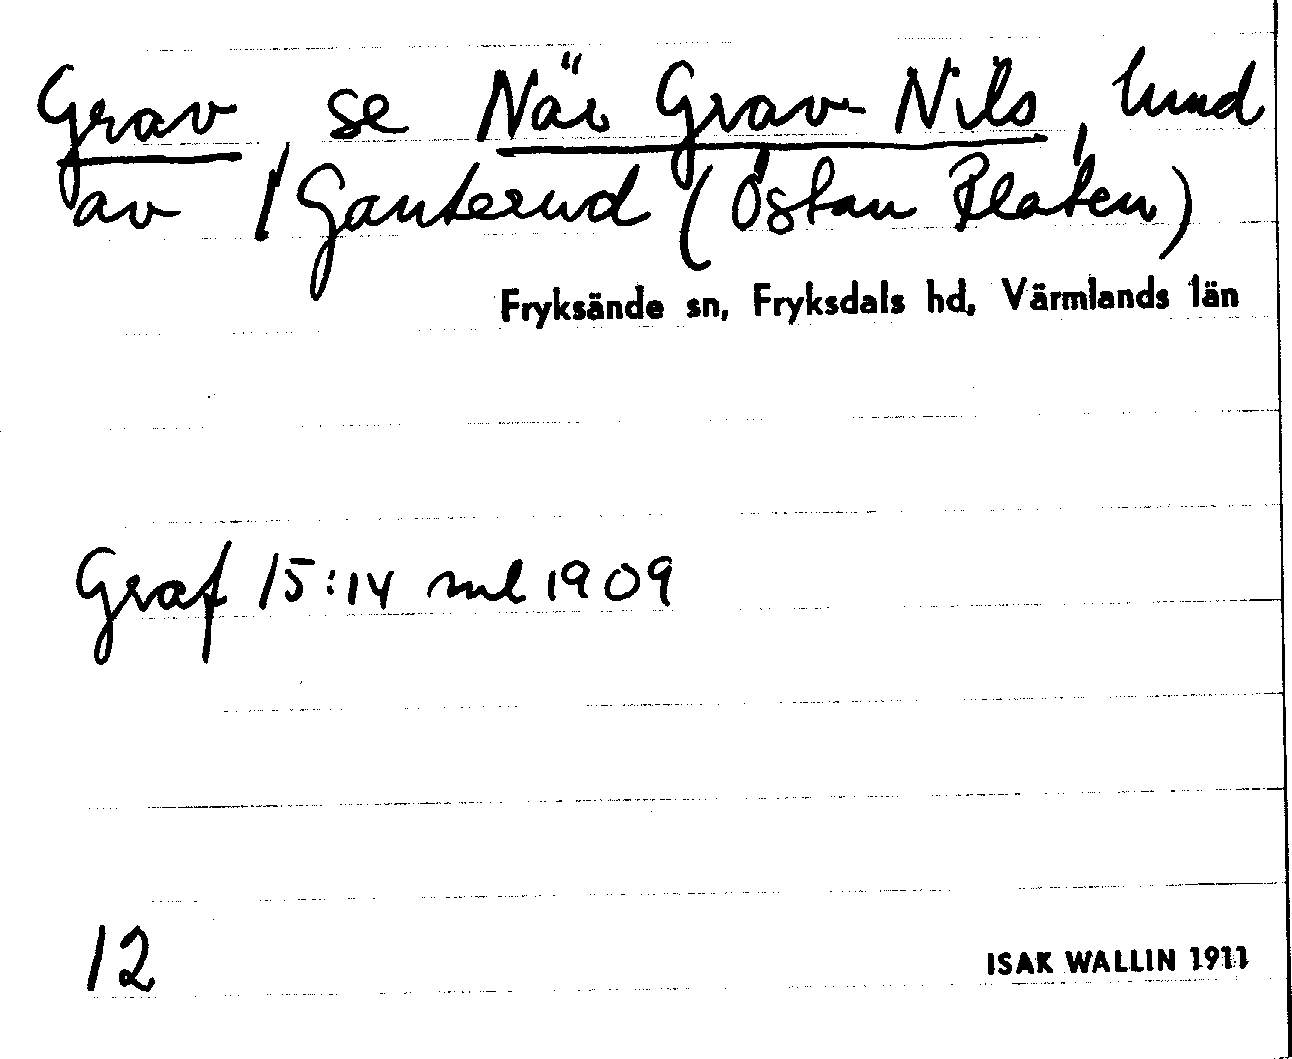 Grav se När Grav Nils, lund
av 1 Ganterud (Östan Platen)
Fryksände sn, Fryksdals hd, Värmlands län
Graf 15:14 ml 1909
12
ISAK WALLIN 1911